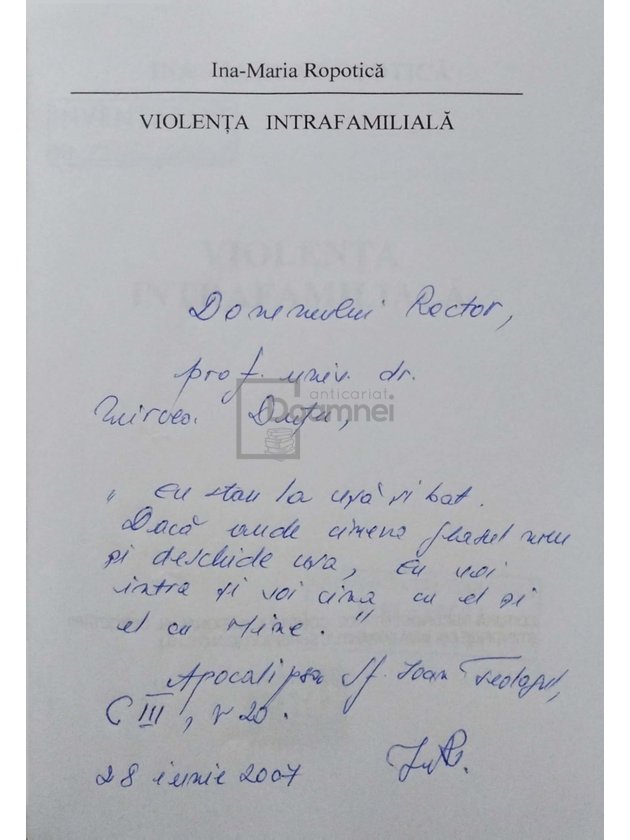 Ina-Maria Ropotică
VIOLENȚA INTRAFAMILIALĂ
Domnului Rector,
prof. univ. dr.
Mircea Duțu,
anticariat
Doamnei
" Eu stau la ușă și bat.
Dacă aude cineva glasul meu
și deschide ușa, Eu voi
intra și voi cina cu el și
el cu Mine "
Apocalipsa Sf. Ioan Teologul,
C III, v 20.
28 iunie 2007